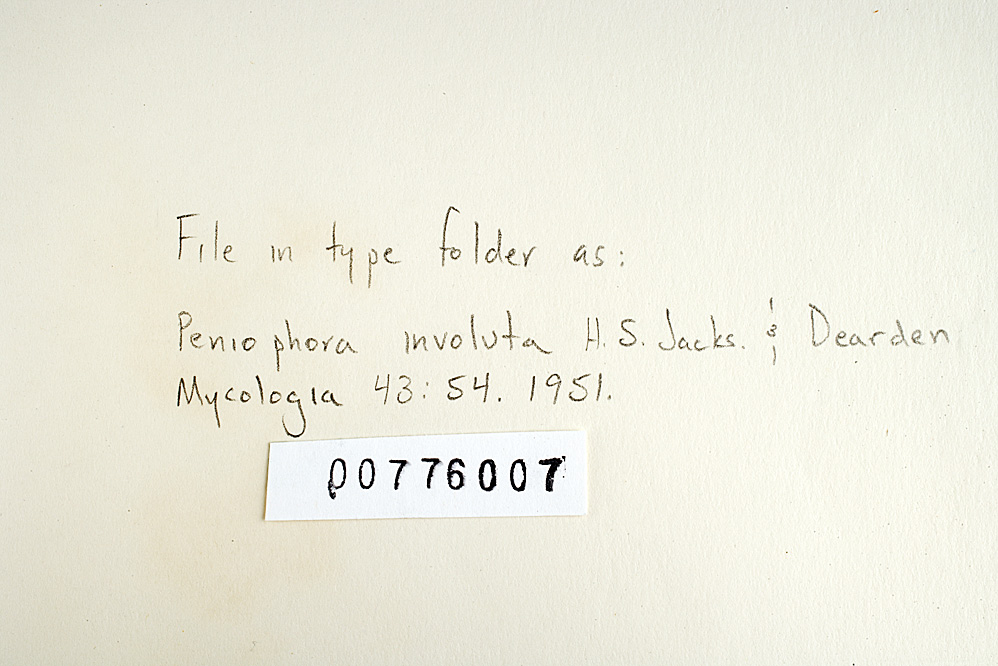 File in type folder as:
Peniophora involuta H. S. Jacks. & Dearden
Mycologia 43: 54. 1951.
00776007